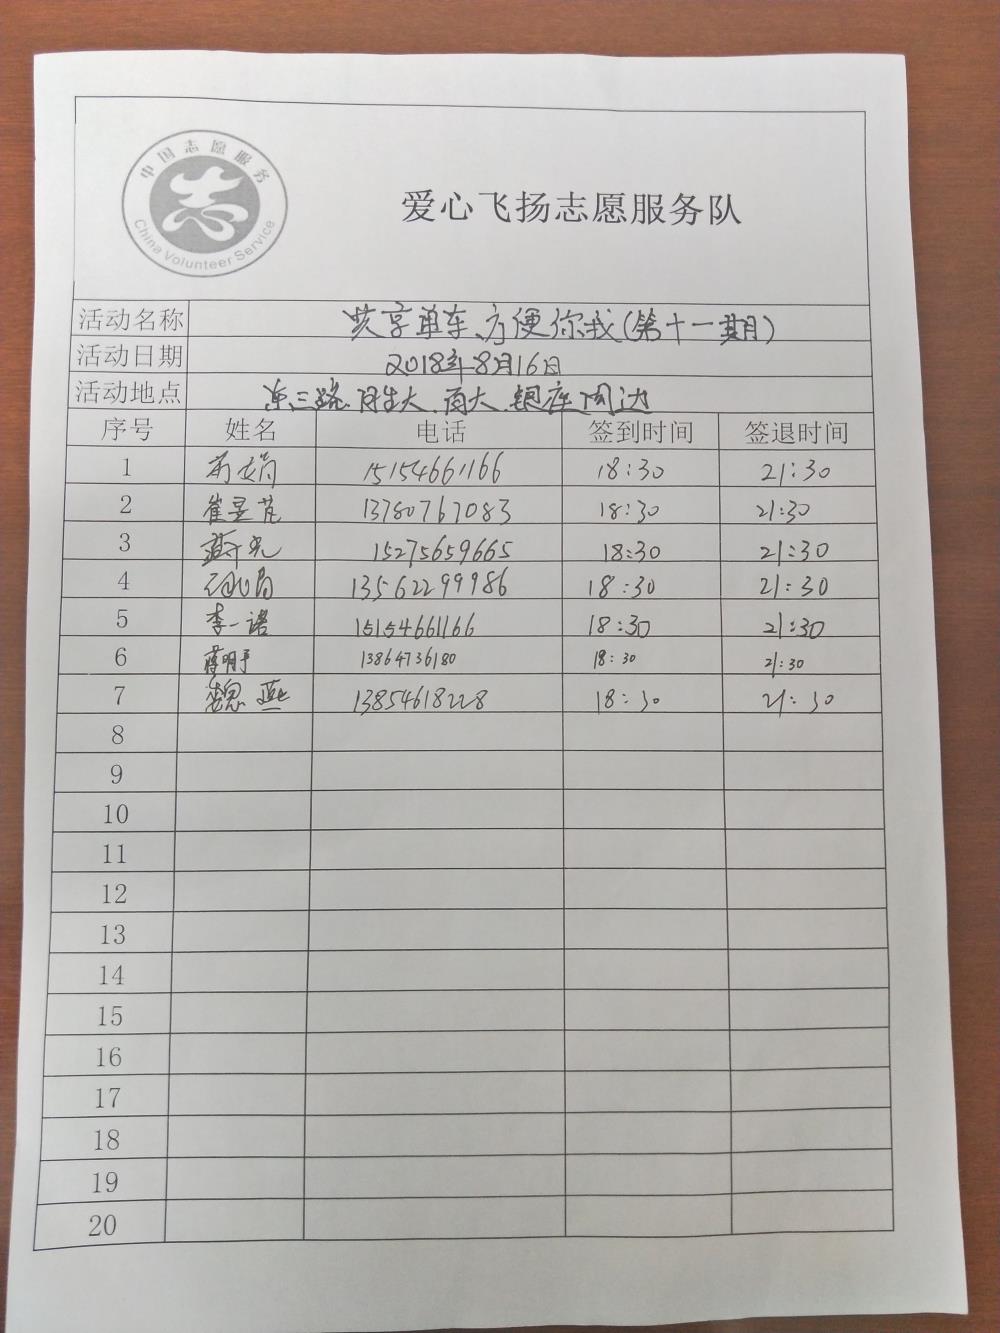 中国志愿服务
China Volunteer Service
爱心飞扬志愿服务队
活动名称 共享单车、方便你我(第十一期)
活动日期 2018年8月16日
活动地点 东三路、胜大、商大、银座周边
序号 姓名 电话 签到时间 签退时间
1 15154661166 18:30 21:30
2 崔昱芃 13780767083 18:30 21:30
3 15275659665 18:30 21:30
4 13562299986 18:30 21:30
5 李一诺 15154661166 18:30 21:30
6 13864736180 18:30 21:30
7 魏燕 13854618228 18:30 21:30
8
9
10
11
12
13
14
15
16
17
18
19
20